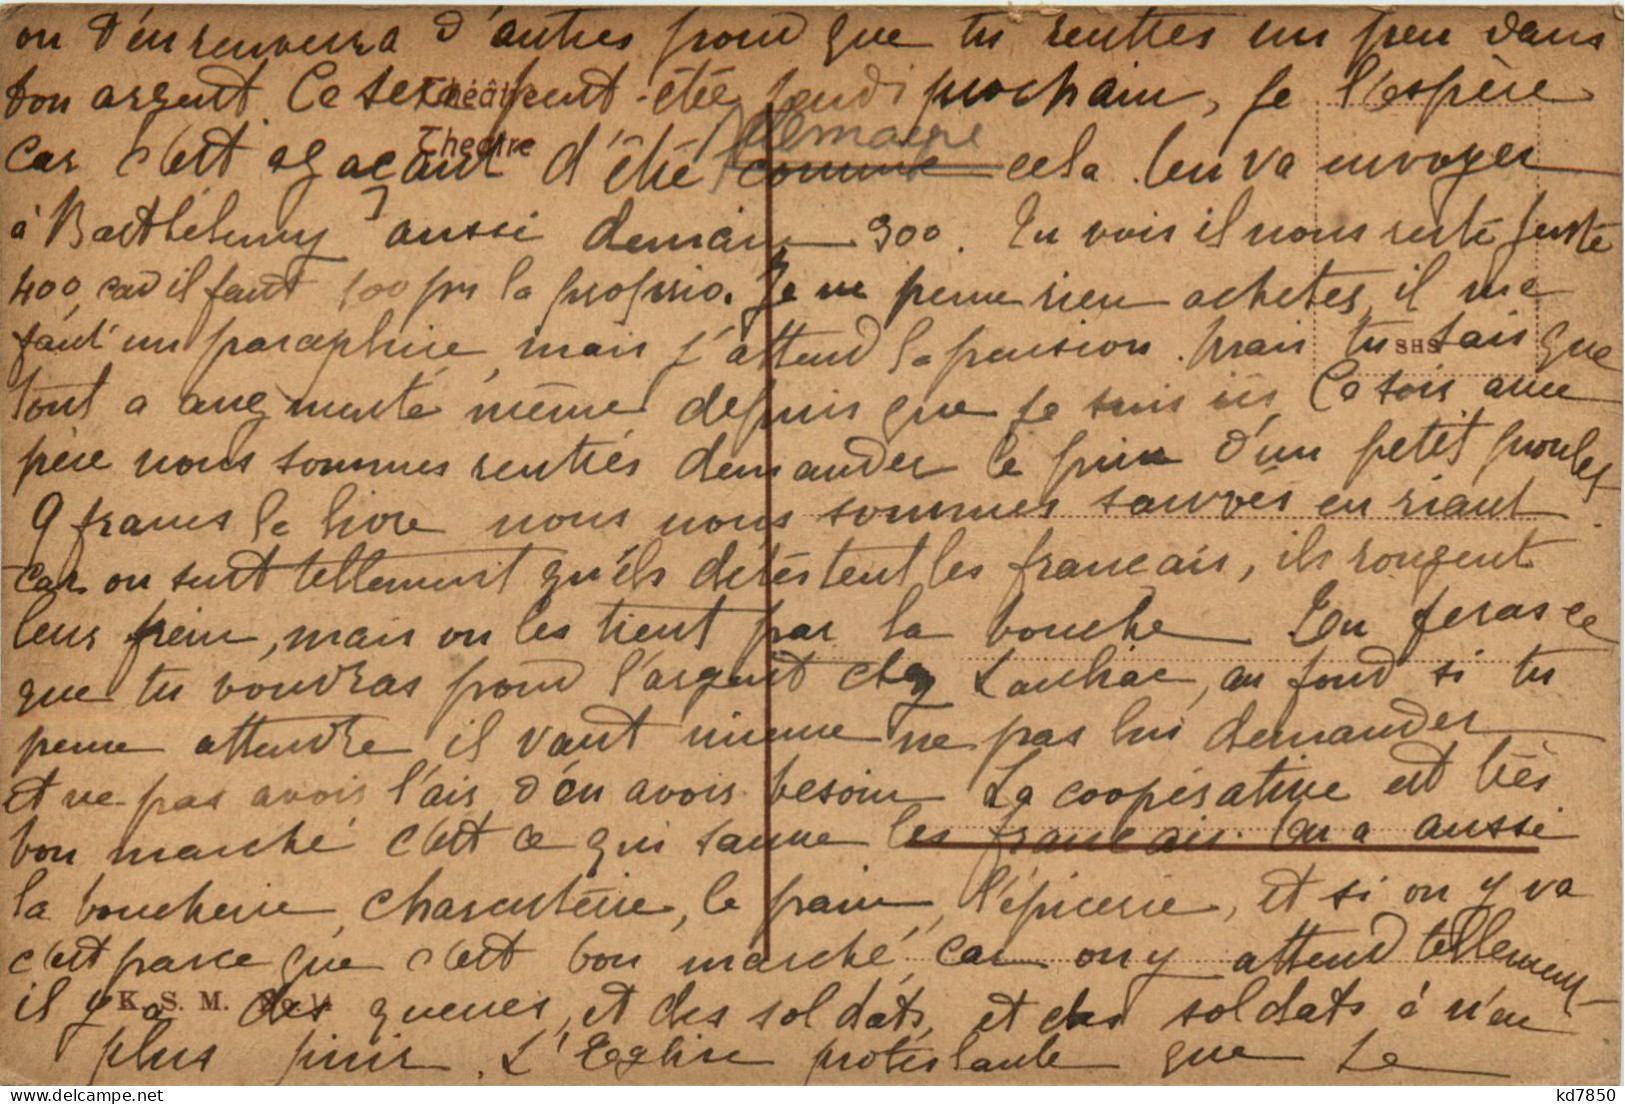 on t'en renverra d'autres pour que tu rentres un peu dans
ton argent. Ce sera peut-être jeudi prochain, je l'espère
Théâtre
car c'est agaçant d'être comme cela. On va envoyer
Theatre
Allemagne
à Barthélemy aussi demain 300. Tu vois il nous reste juste
400, car il faut 100 pr la proprio. Je ne peux rien acheter, il me
faut un parapluie, mais j'attend la pension. Mais tu sais que
SHS
tout a augmenté même depuis que je suis ici. Ce soir avec
père nous sommes rentrés demander le prix d'un petit poulet
9 francs le livre nous nous sommes sauvés en riant
car on sent tellement qu'ils détestent les francais, ils rongent
leur frein, mais on les tient par la bouche. Tu feras ce
que tu voudras pour l'argent chez Lauhac, au fond si tu
peux attendre il vaut mieux ne pas lui demander
et ne pas avoir l'air d'en avoir besoin. La coopérative est très
bon marché c'est ce qui sauve les francais. On a aussi
la boucherie, charcuterie, le pain, l'épicerie, et si on y va
c'est parce que c'est bon marché, car on y attend tellement
il y a des queues, et des soldats, et des soldats à n'en
K. S. M.
plus finir. L'Eglise protestante que je
kd7850